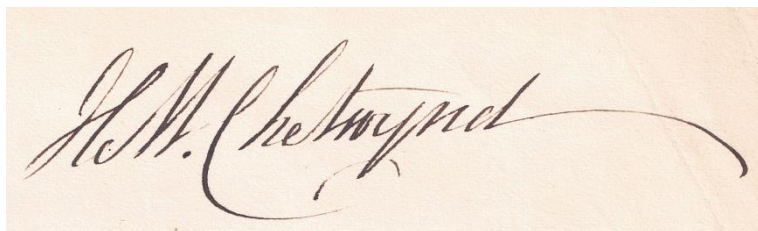 H. M. Chetwynd